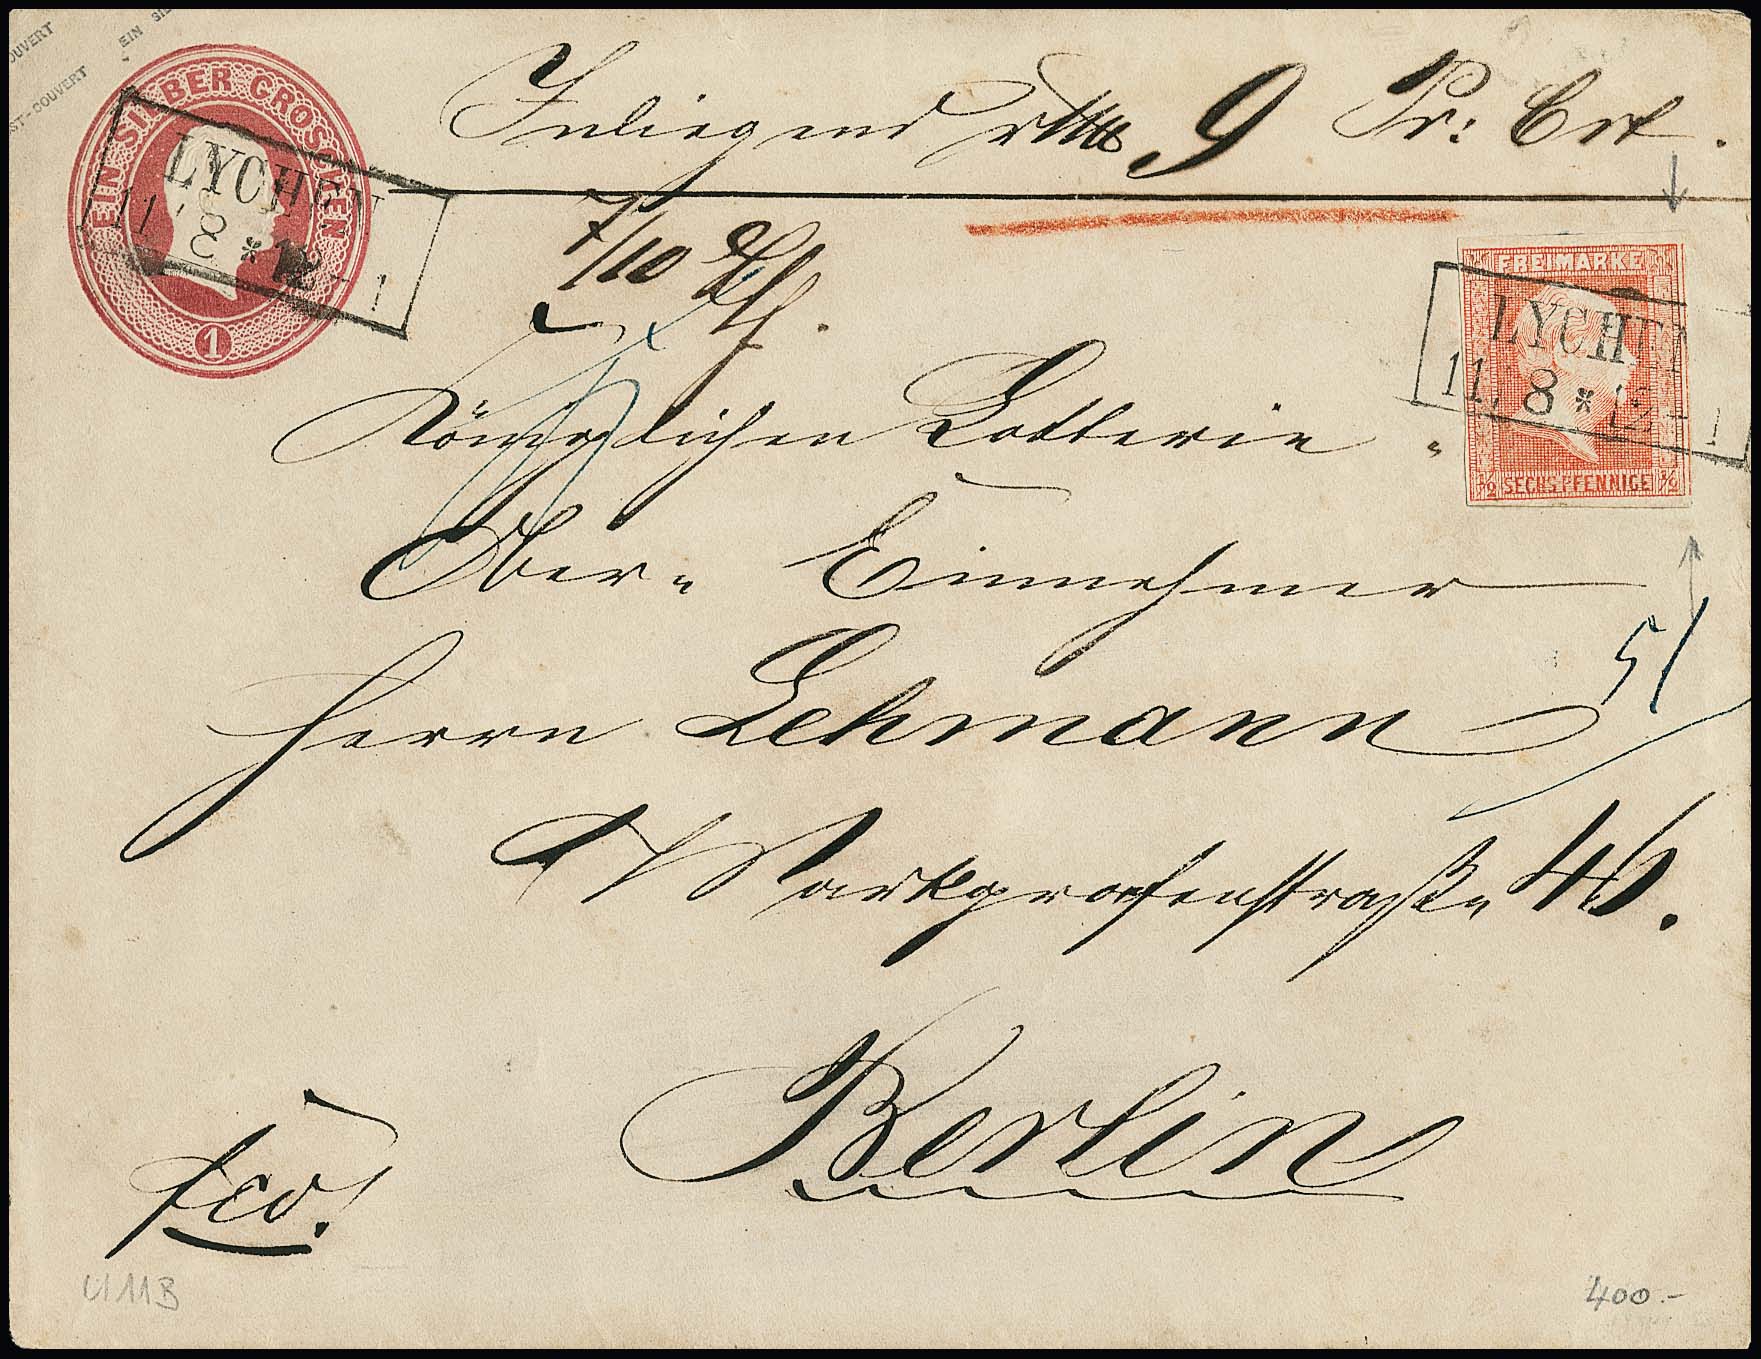 OUVERT
ST-COUVERT
EIN SIL
EIN SILBER GROSCHEN
1
LYCHEN
11 8 * 12 - 1
Inliegend 9 Pr: Crt.
7/10
FREIMARKE
LYCHEN
11 8 * 12 - 1
1/2 SECHS PFENNIGE 1/2
Königlichen Lotterie "
Ober= Einnehmer
Herrn Lehmann
51
Markgrafenstraße 46.
Berlin
fco!
U 11B
400.-